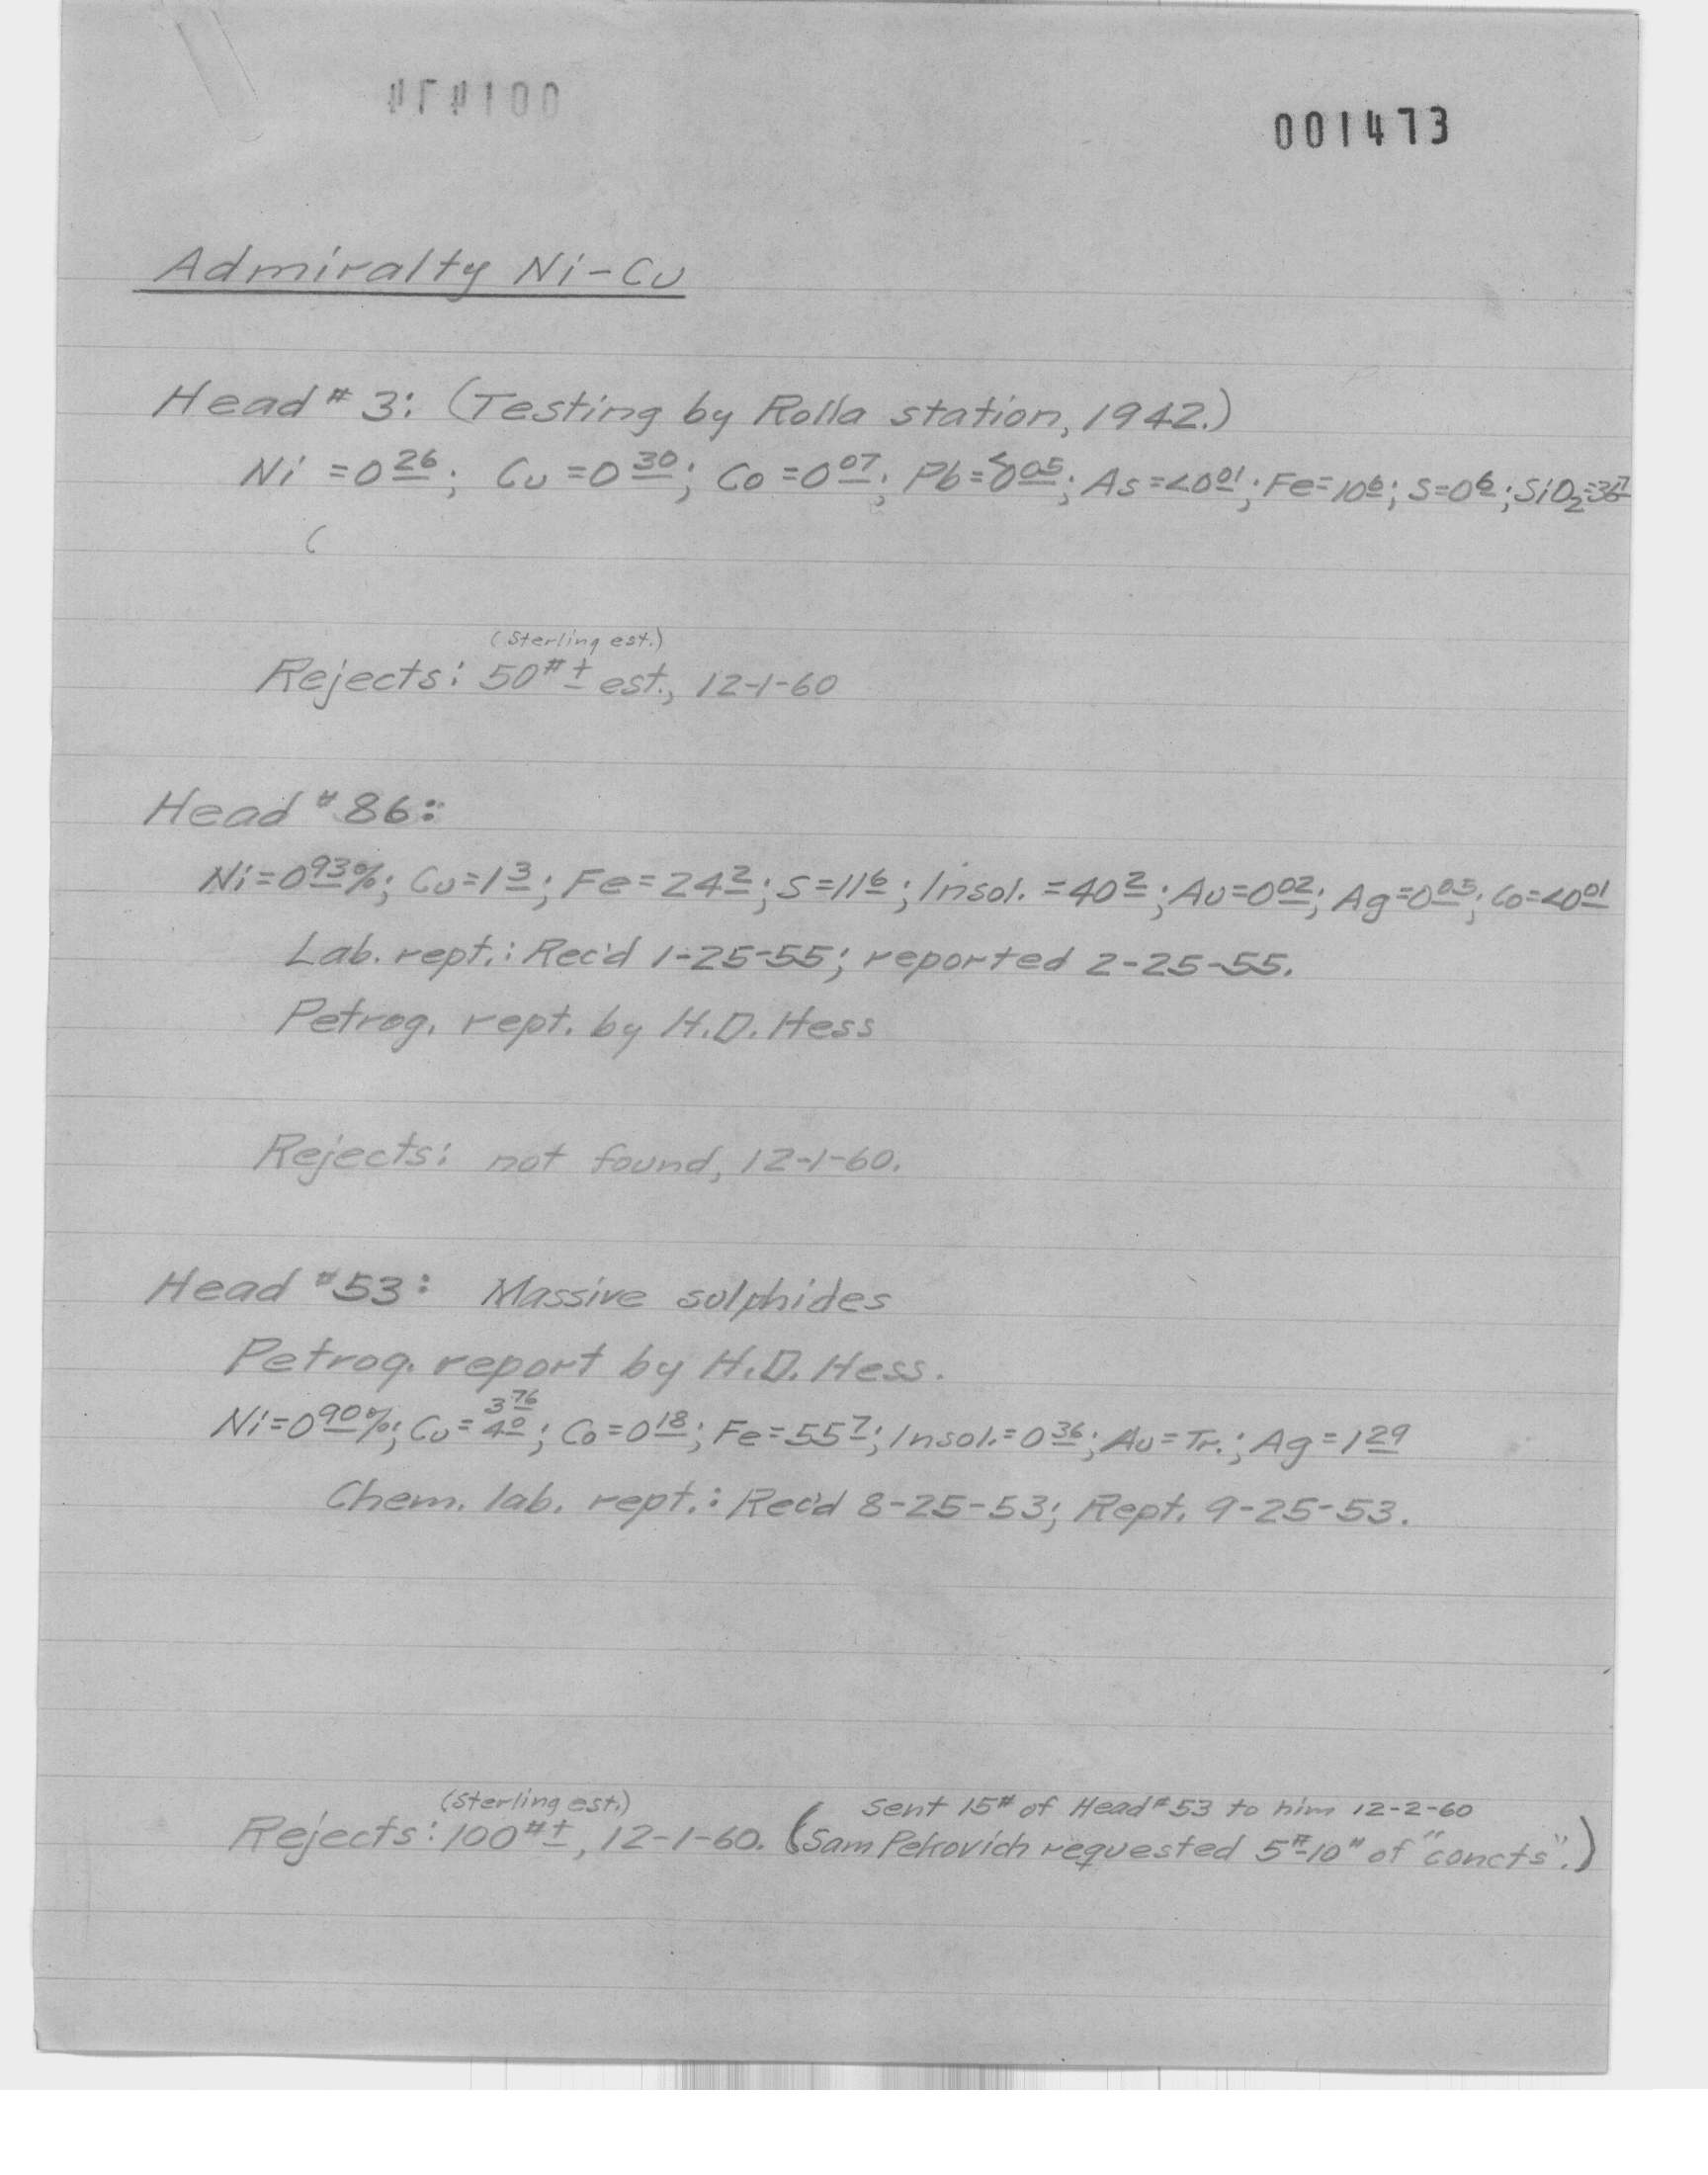 001474
001473
Admiralty Ni-Cu
Head # 3: (Testing by Rolla station, 1942.)
Ni = 0 26; Cu = 0 30; Co = 0 07; Pb = <0 05; As = <0 01; Fe = 10 6; S = 0 6; SiO2 = 36 7
(
(Sterling est.)
Rejects: 50# ± est., 12-1-60
Head # 86:
Ni = 0 93%; Cu = 1 3; Fe = 24 2; S = 11 6; Insol. = 40 2; Au = 0 02; Ag = 0 05; Co = <0 01
Lab. rept.: Rec'd 1-25-55; reported 2-25-55.
Petrog. rept. by H.D. Hess
Rejects: not found, 12-1-60.
Head # 53: Massive sulphides
Petrog. report by H.D. Hess.
3 76
Ni = 0 90%; Cu = 4 0; Co = 0 18; Fe = 55 7; Insol. = 0 36; Au = Tr.; Ag = 1 29
Chem. lab. rept.: Rec'd 8-25-53; Rept. 9-25-53.
(Sterling est.) Sent 15# of Head # 53 to him 12-2-60
Rejects: 100# ±, 12-1-60. (Sam Pekovich requested 5#-10# of "concts".)